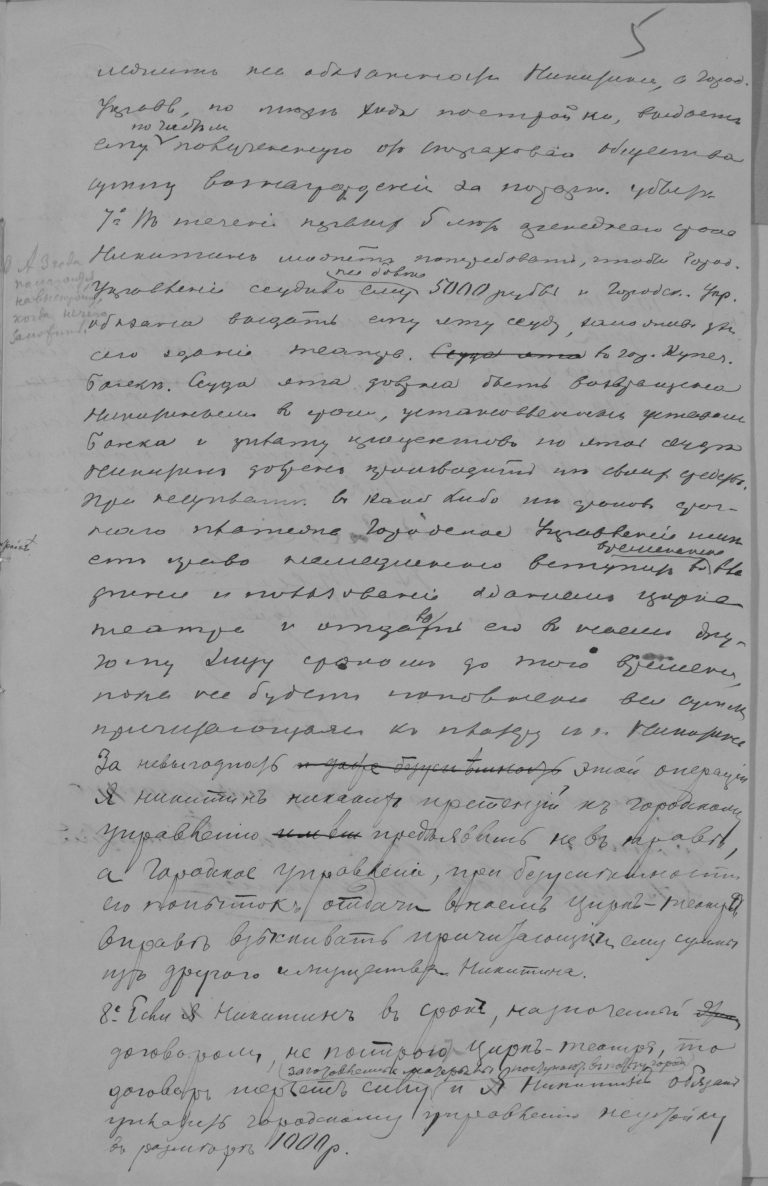 5
лежитъ на обязанности Никитина, а Город.
Управ., по мѣрѣ хода постройки, выдаетъ
по частям
ему полученную отъ Страховаго общества
сумму вознагражденія за пожарн. убытк.
7. Въ теченіи первыхъ 6 лѣтъ арендного срока
Никитинъ можетъ потребовать, чтобы Город.
не болѣе
Управленіе ссудило ему 5000 рублей и Городск. Упр.
обязано выдать ему эту ссуду,
сего зданіе театра. Ссуда эта въ гор. Купеч.
Банкѣ. Ссуда эта должна быть возвращена
Никитинымъ въ срокъ, установленный уставомъ
Банка и уплату процентовъ по этой ссудѣ
Никитинъ долженъ производить изъ своихъ средствъ.
При неуплатѣ въ какой либо изъ сроковъ сроч-
наго платежа Городское Управленіе имѣ-
временно
етъ право немедленно вступить во вла
дѣніе и пользованіе зданіемъ цирка
театра и отдавать его въ наемъ дру-
гому лицу срокомъ до того времени,
пока не будетъ пополнена вся сумма
причитающаяся къ платежу съ Никитина
За невыгодность этой операціи
Я Никитинъ никакихъ претензій къ городскому
управленію предъявить не въ правѣ,
а Городское управленіе, при безуспѣшности
его попытокъ отдачи внаемъ Циркъ-театра
вправѣ взыскивать причитающіеся ему суммы
изъ другого имущества Никитина.
8. Если я Никитинъ въ срокъ, назначенный
договоромъ, не построю Циркъ-театра, то
заготовленный матеріалъ поступаетъ въ пользу города
договоръ теряетъ силу и я Никитинъ обязанъ
уплатить городскому управленію неустойку
въ размѣрѣ 1000 р.
А 3 года
когда